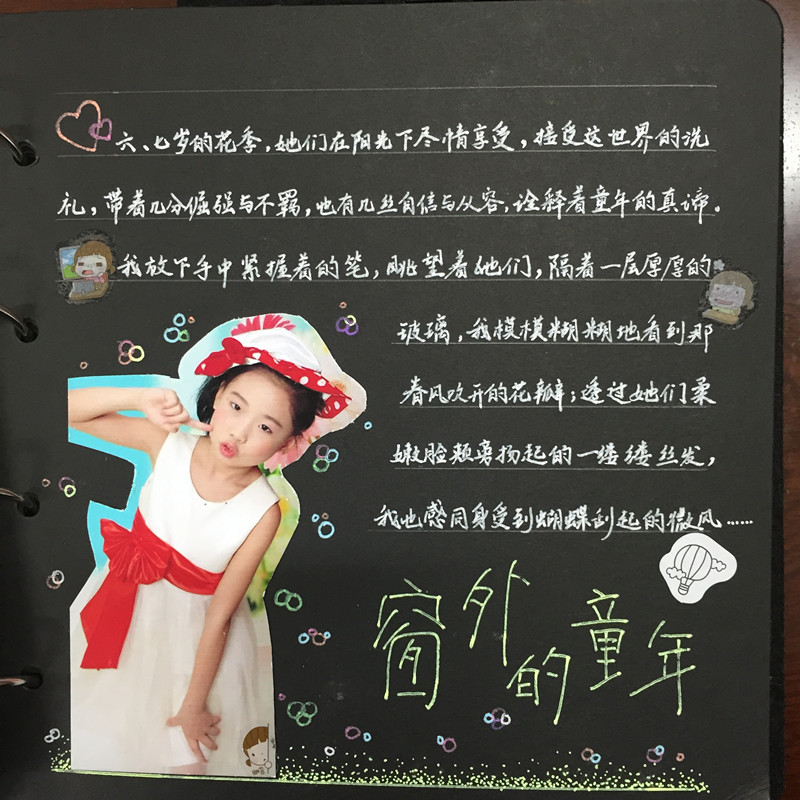 六、七岁的花季，她们在阳光下尽情享受，接受这世界的洗
礼，带着几分倔强与不羁，也有几丝自信与从容，诠释着童年的真谛。
我放下手中紧握着的笔，眺望着她们，隔着一层厚厚的
玻璃，我模模糊糊地看到那
春风吹开的花瓣；透过她们柔
嫩脸颊旁扬起的一缕缕丝发，
我也感同身受到蝴蝶刮起的微风……
窗外的童年